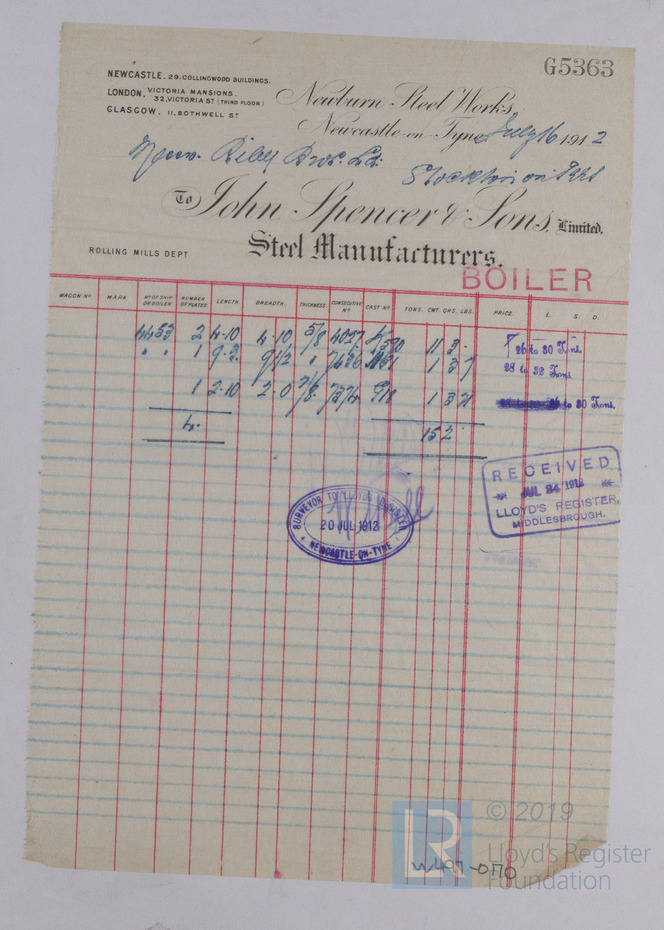 G5363
NEWCASTLE. 29. COLLINGWOOD BUILDINGS.
LONDON, VICTORIA MANSIONS. 32, VICTORIA ST (THIRD FLOOR)
GLASGOW, 11, BOTHWELL ST
Newburn Steel Works,
Newcastle-on-Tyne July 16 1912
Riley Bros. Ld.
Stockton on Tees
To John Spencer & Sons, Limited.
Steel Manufacturers.
ROLLING MILLS DEPT
BOILER
WAGON No MARK No OF SHIP OR BOILER NUMBER OF PLATES LENGTH. BREADTH. THICKNESS CONSECUTIVE No CAST No TONS. CWT. QRS. LBS. PRICE. £. S. D.
2 4-10 4-10 5/8 11 3 26 to 30 Tons.
" " 1 " 1 3 7 28 to 32 Tons.
1 2-10 2-0 1 3 to 30 Tons.
4 15 2
RECEIVED
JUL 24 1912
LLOYD'S REGISTER,
MIDDLESBROUGH.
SURVEYOR TO LLOYD'S REGISTER
20 JUL 1912
NEWCASTLE-ON-TYNE
© 2019
LR Lloyd's Register
Foundation
W497-0170